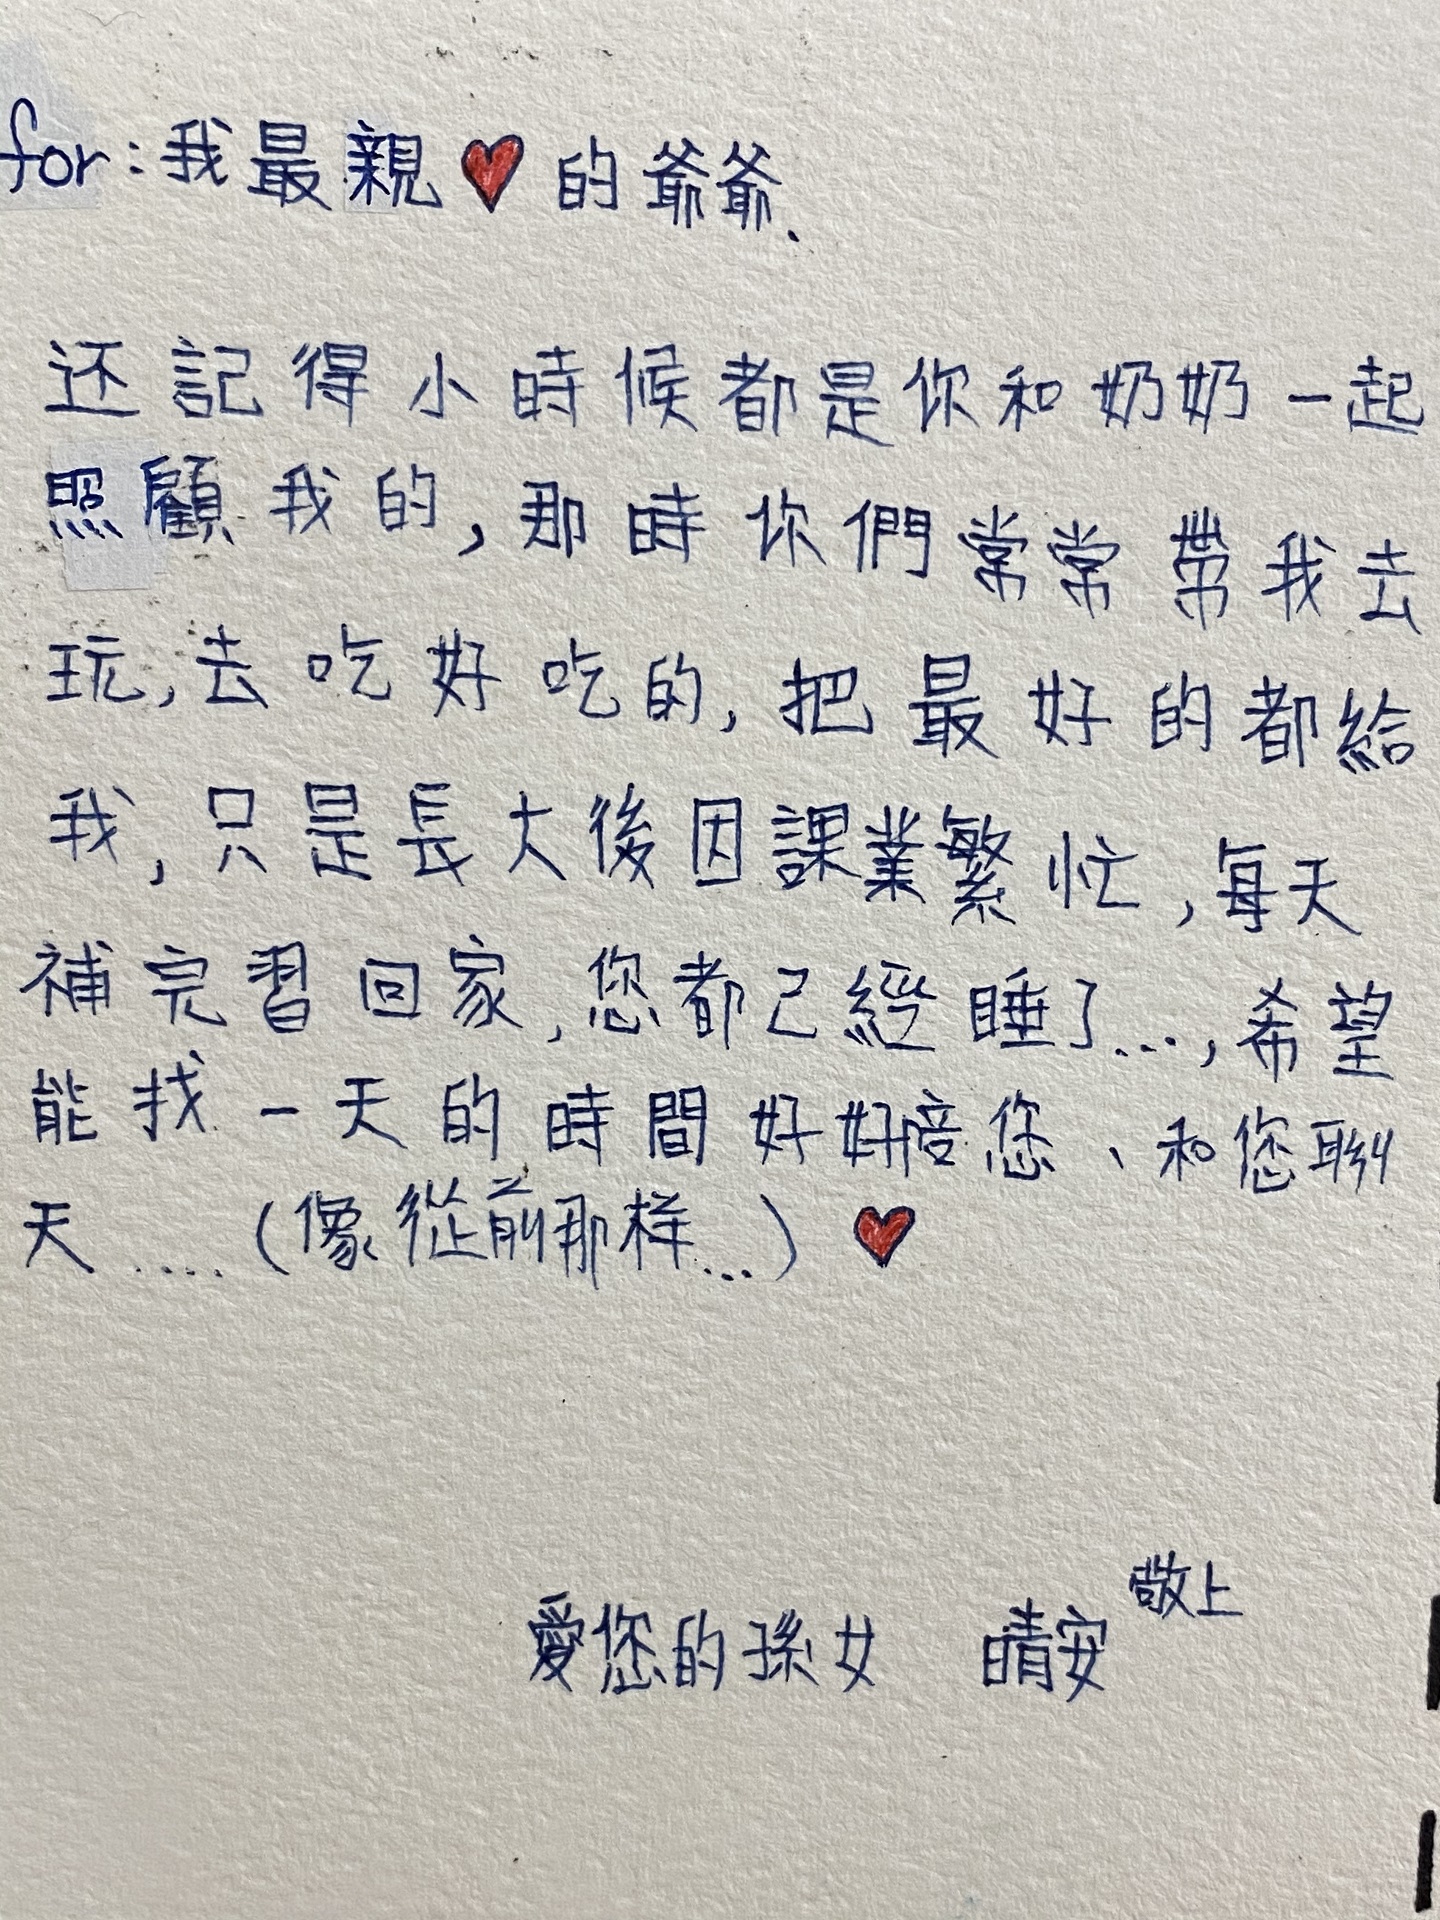 for:我最親♥的爺爺、
还記得小時候都是你和奶奶一起
照顧我的,那時你們常常帶我去
玩,去吃好吃的,把最好的都給
我,只是長大後因課業繁忙,每天
補完習回家,您都已經睡了...,希望
能找一天的時間好好陪您、和您聊
天.....(像從前那样...)♥
敬上
愛您的孫女 晴安